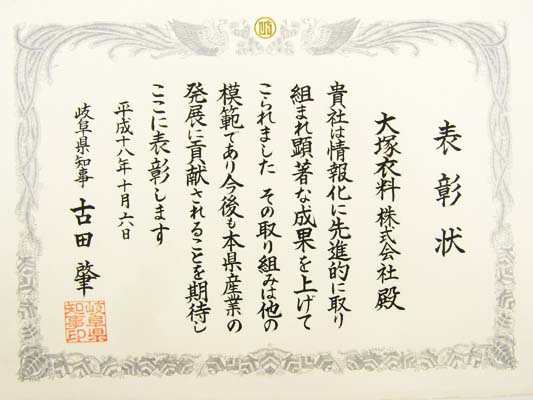 表彰状
大塚衣料株式会社殿
貴社は情報化に先進的に取り
組まれ顕著な成果を上げて
こられました その取り組みは他の
模範であり今後も本県産業の
発展に貢献されることを期待し
ここに表彰します
平成十八年十月六日
岐阜県知事 古田 肇
岐阜県
知事印